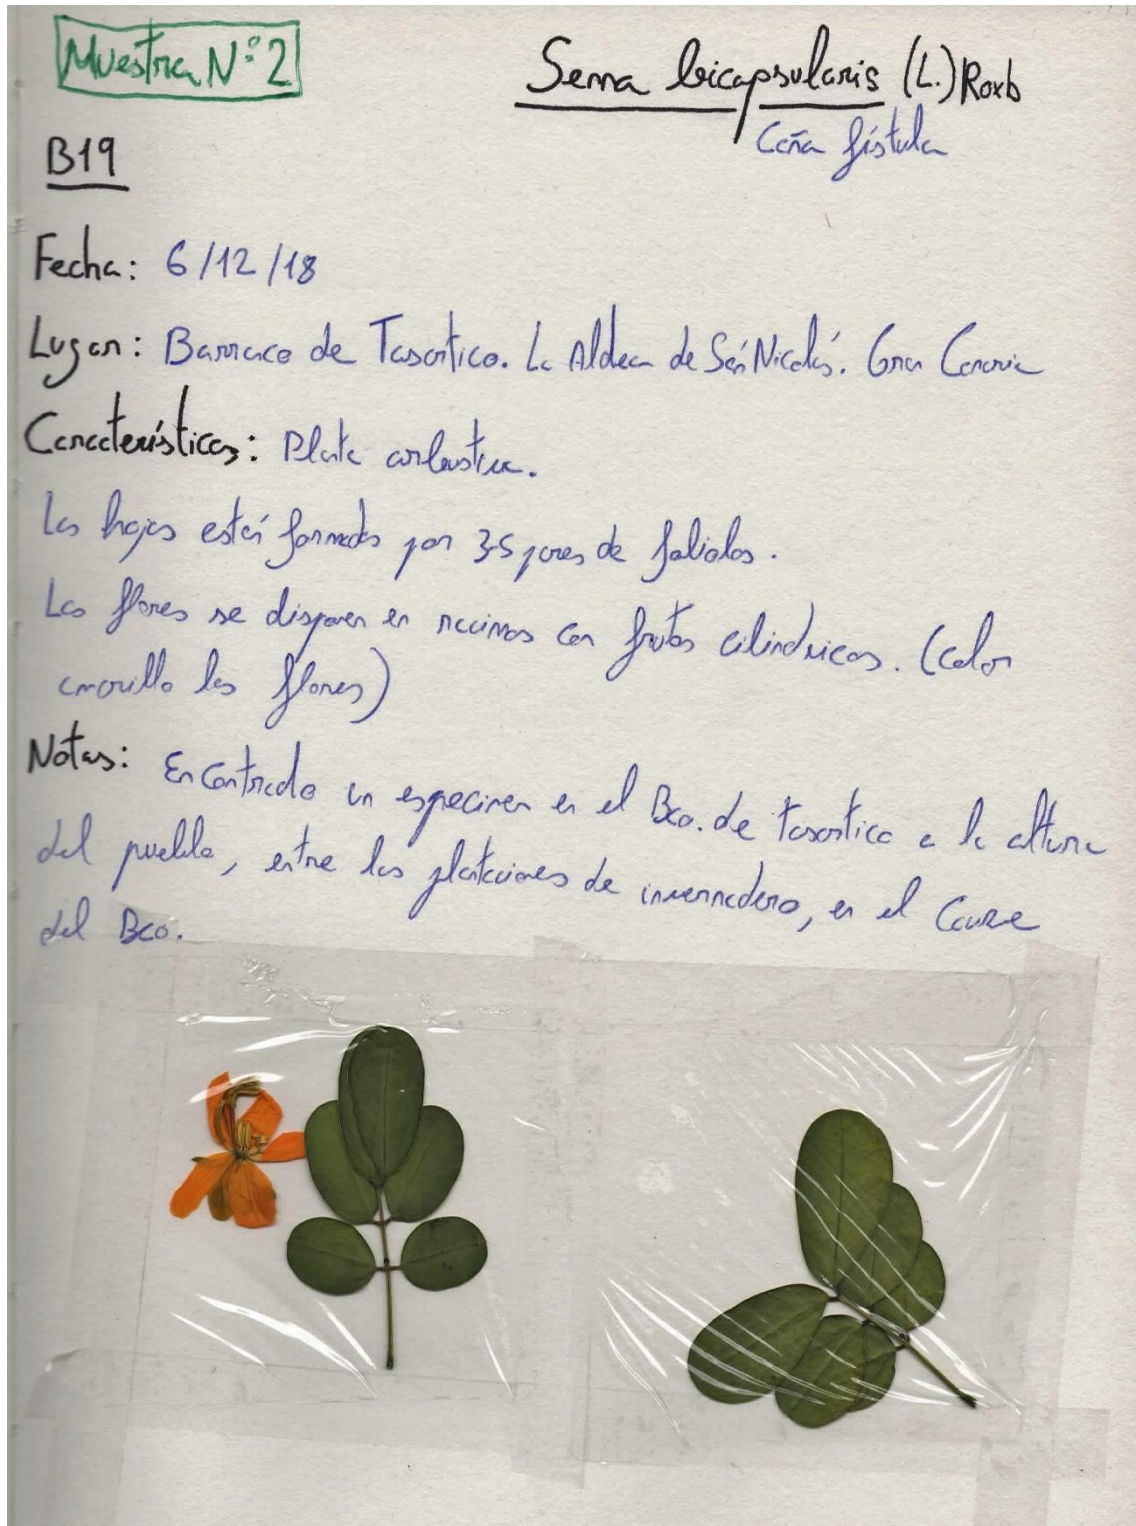 Muestra Nº2
Senna bicapsularis (L.) Roxb
Caña fístula
B19
Fecha: 6/12/18
Lugar: Barranco de Tasartico. La Aldea de San Nicolás. Gran Canaria
Características: Planta arbustiva.
Las hojas están formadas por 3-5 pares de foliolos.
Las flores se disponen en racimos con frutos cilindricos. (color
amarillo las flores)
Notas: Encontrado un especimen en el Bco. de tasartico a la altura
del pueblo, entre las plantaciones de invernadero, en el Cauce
del Bco.